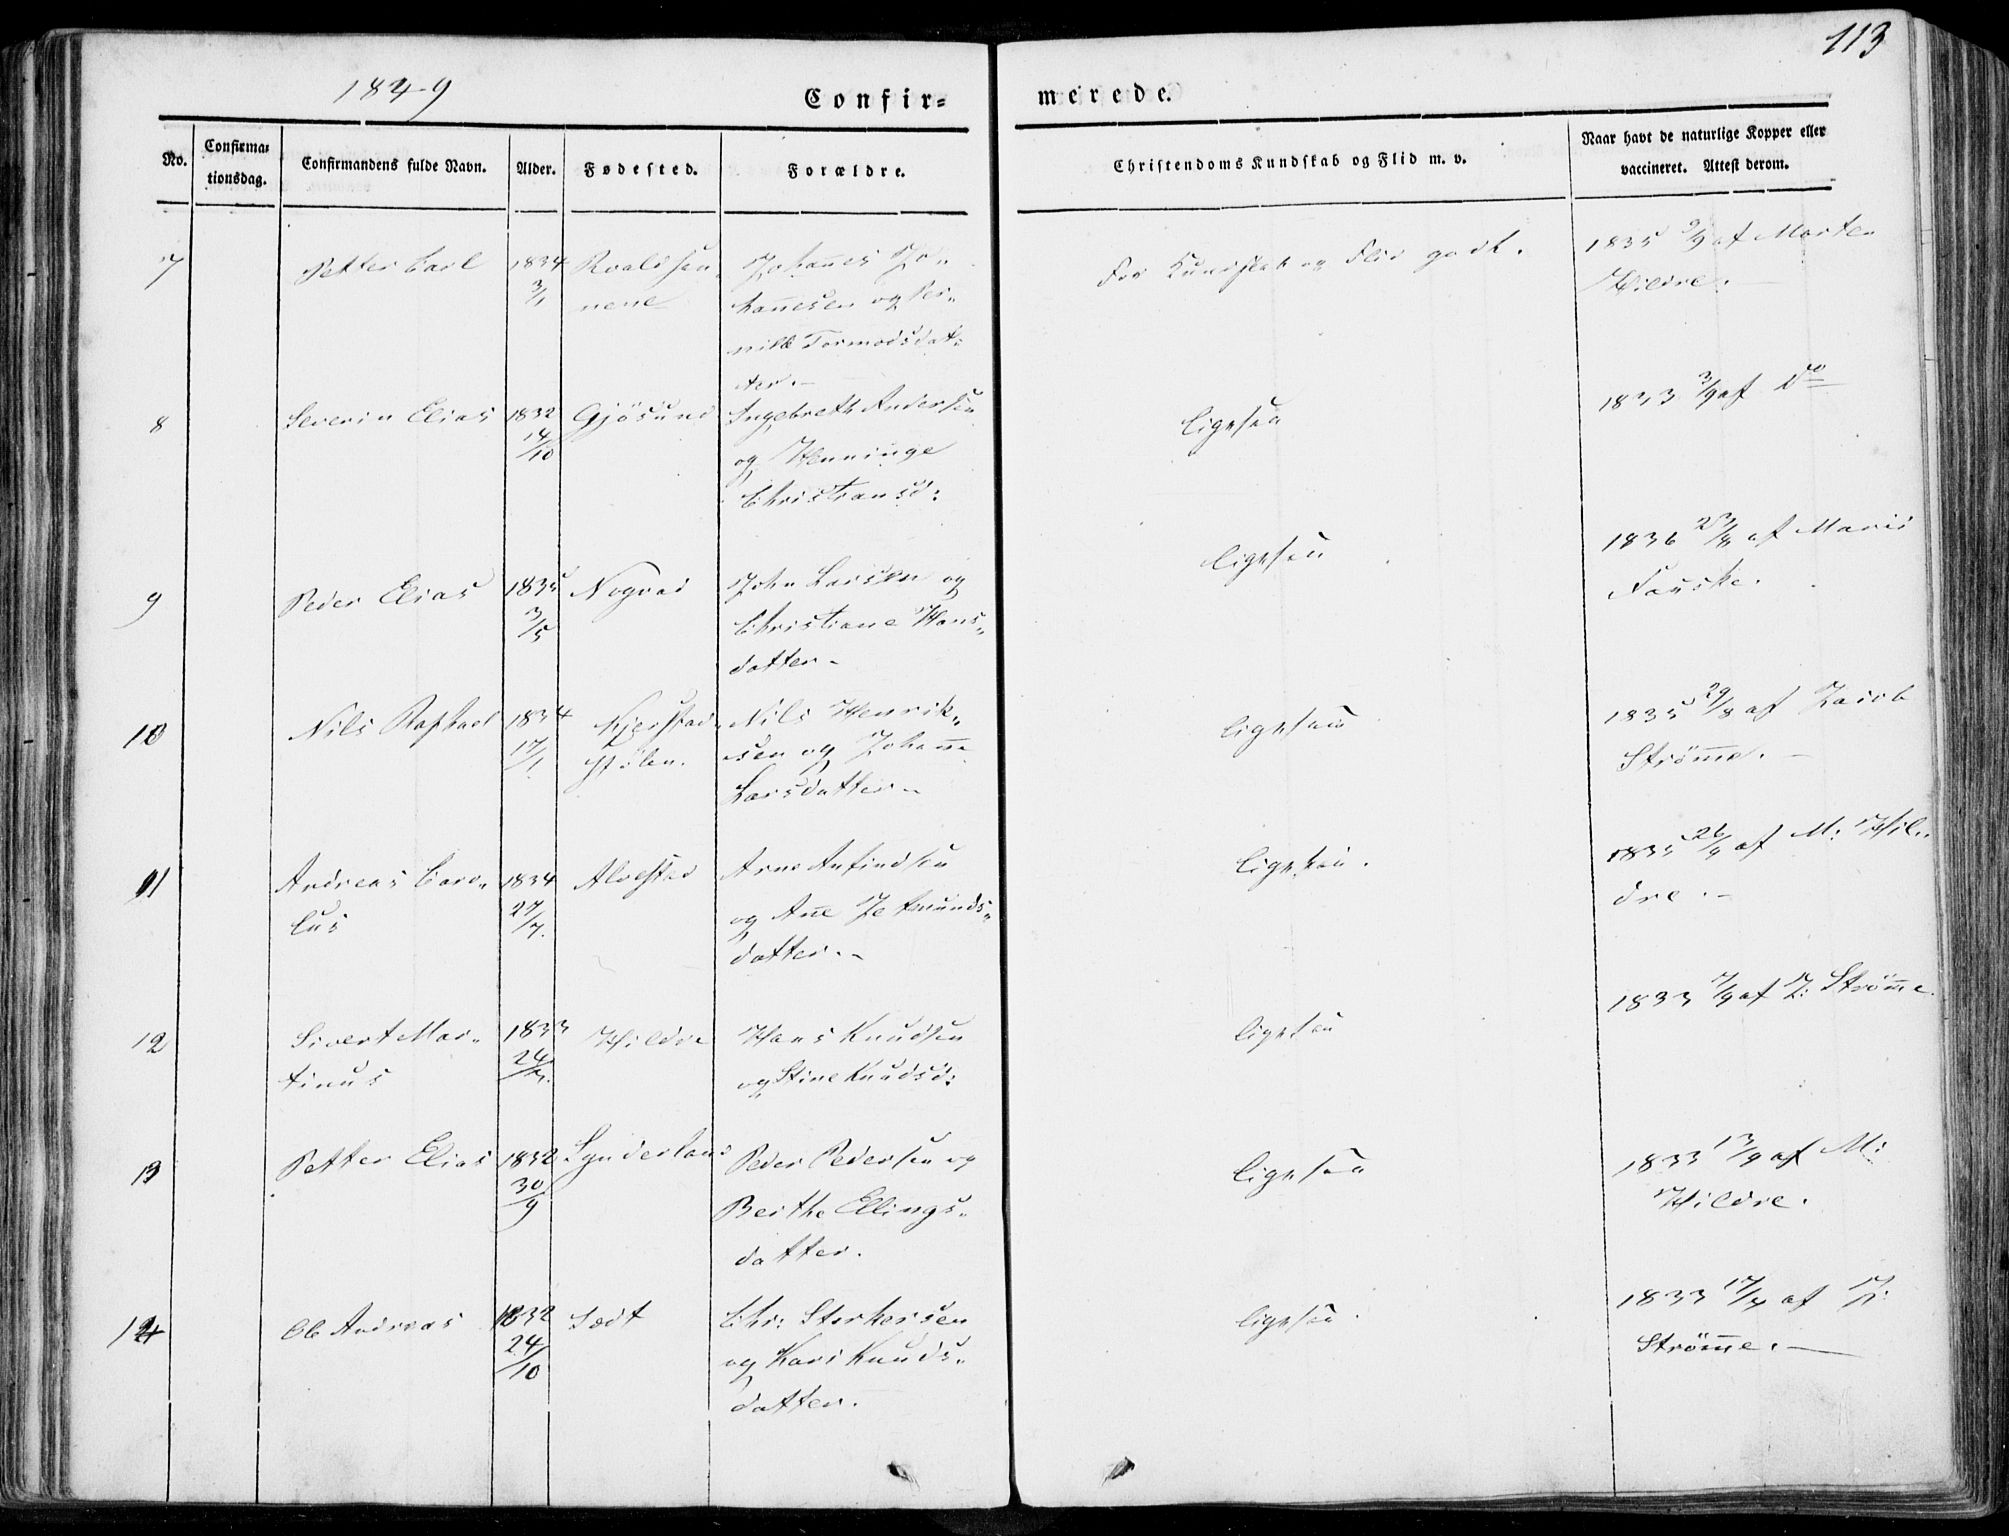 113
1849
Confir=
merede.
No.
Confirma=
tionsdag.
Confirmandens fulde Navn.
Alder.
Fødested.
Forældre.
Christendoms Kundskab og Flid m. v.
Naar havt de naturlige Kopper eller
vaccineret. Attest derom.
7
Petter Carl
1834
3/1
Roaldsen
nene
Johannes Jo„
hannesen og Per„
nille Tormodsdat„
ter.
For Kundskab og Flid godt.
1835 9/9 af Morten
Hildre.
8
Severin Elias
1832
14/10
Gjøsund
Ingebreth Andersen
og Henninge
Christiansd:
ligesaa
1833 3/9 af Do
9
Peder Elias
1835
3/5
Nogvad
John Larsen og
Christiane Hans„
datter
ligesaa
1836 23/8 af Maris
Fauske.
10
Nils Raphael
1834
17/1
Kjerstad„
stølen.
Nils Henrik„
sen og Johanne
Larsdatter
ligesaa
1835 29/8 af Jacob
Strømme.
11
Andreas Caro„
lus
1834
27/7.
Alvestad
Arne Anfindsen
og Ane Jetmunds„
datter.
ligesaa.
1835 26/9 af M: Hil„
dre.
12
Sivert Mar„
tinus
1833
24/3.
Hildre
Hans Knudsen
og Stine Knudsd:
ligesaa
1833 7/9 af J: Strømme.
13
Petter Elias
1832
30/9
Synderland
Peder Pedersen og
Berthe Ellings„
datter.
ligesaa
1833 13/9 af M:
Hildre.
14
Ole Andreas
1832
24/10
Sædt
Chr: Storkersen
og Kari Knuds„
datter.
ligesaa.
1833 17/7 af J:
Strømme.